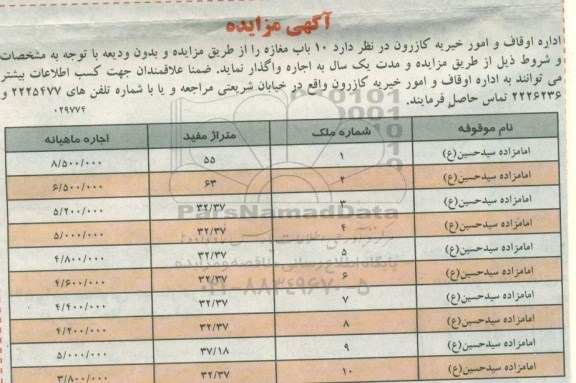 آگهی مزایده
اداره اوقاف و امور خیریه کازرون در نظر دارد ۱۰ باب مغازه را از طریق مزایده و بدون ودیعه با توجه به مشخصات
و شروط ذیل از طریق مزایده و مدت یک سال به اجاره واگذار نماید. ضمنا علاقمندان جهت کسب اطلاعات بیشتر
می توانند به اداره اوقاف و امور خیریه کازرون واقع در خیابان شریعتی مراجعه و یا با شماره تلفن های ۲۲۲۵۴۷۷ و
۲۲۲۶۲۳۶ تماس حاصل فرمایند.
۰۲۹۷۷۴
نام موقوفه شماره ملک متراژ مفید اجاره ماهیانه
امامزاده سیدحسین(ع) ۱ ۵۵ ۸/۵۰۰/۰۰۰
امامزاده سیدحسین(ع) ۲ ۶۳ ۶/۵۰۰/۰۰۰
امامزاده سیدحسین(ع) ۳ ۳۲/۳۷ ۵/۲۰۰/۰۰۰
امامزاده سیدحسین(ع) ۴ ۳۲/۳۷ ۵/۰۰۰/۰۰۰
امامزاده سیدحسین(ع) ۵ ۳۲/۳۷ ۴/۸۰۰/۰۰۰
امامزاده سیدحسین(ع) ۶ ۳۲/۳۷ ۴/۶۰۰/۰۰۰
امامزاده سیدحسین(ع) ۷ ۳۲/۳۷ ۴/۴۰۰/۰۰۰
امامزاده سیدحسین(ع) ۸ ۳۲/۳۷ ۴/۲۰۰/۰۰۰
امامزاده سیدحسین(ع) ۹ ۳۷/۱۸ ۵/۰۰۰/۰۰۰
امامزاده سیدحسین(ع) ۱۰ ۳۲/۳۷ ۳/۸۰۰/۰۰۰
ParsNamadData
پایگاه اطلاع رسانی مناقصه و مزایده
۰۲۱-۸۸۳۴۹۶۷۰-۵